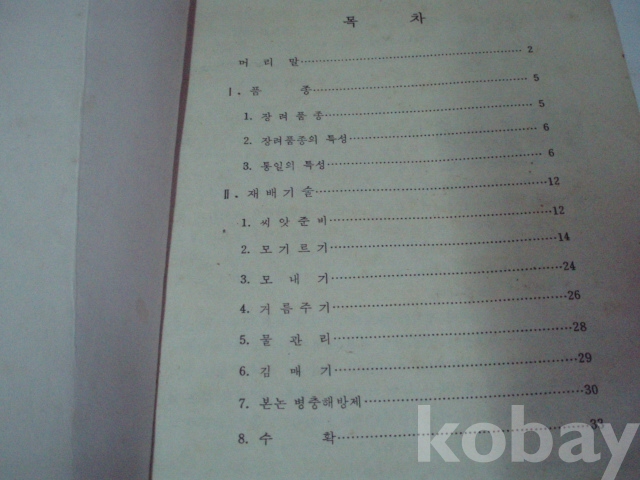 목 차
머 리 말 2
Ⅰ. 품 종 5
1. 장 려 품 종 5
2. 장려품종의 특성 6
3. 통일의 특성 6
Ⅱ. 재 배 기 술 12
1. 씨 앗 준 비 12
2. 모 기 르 기 14
3. 모 내 기 24
4. 거 름 주 기 26
5. 물 관 리 28
6. 김 매 기 29
7. 본논 병충해방제 30
8. 수 확
kobay